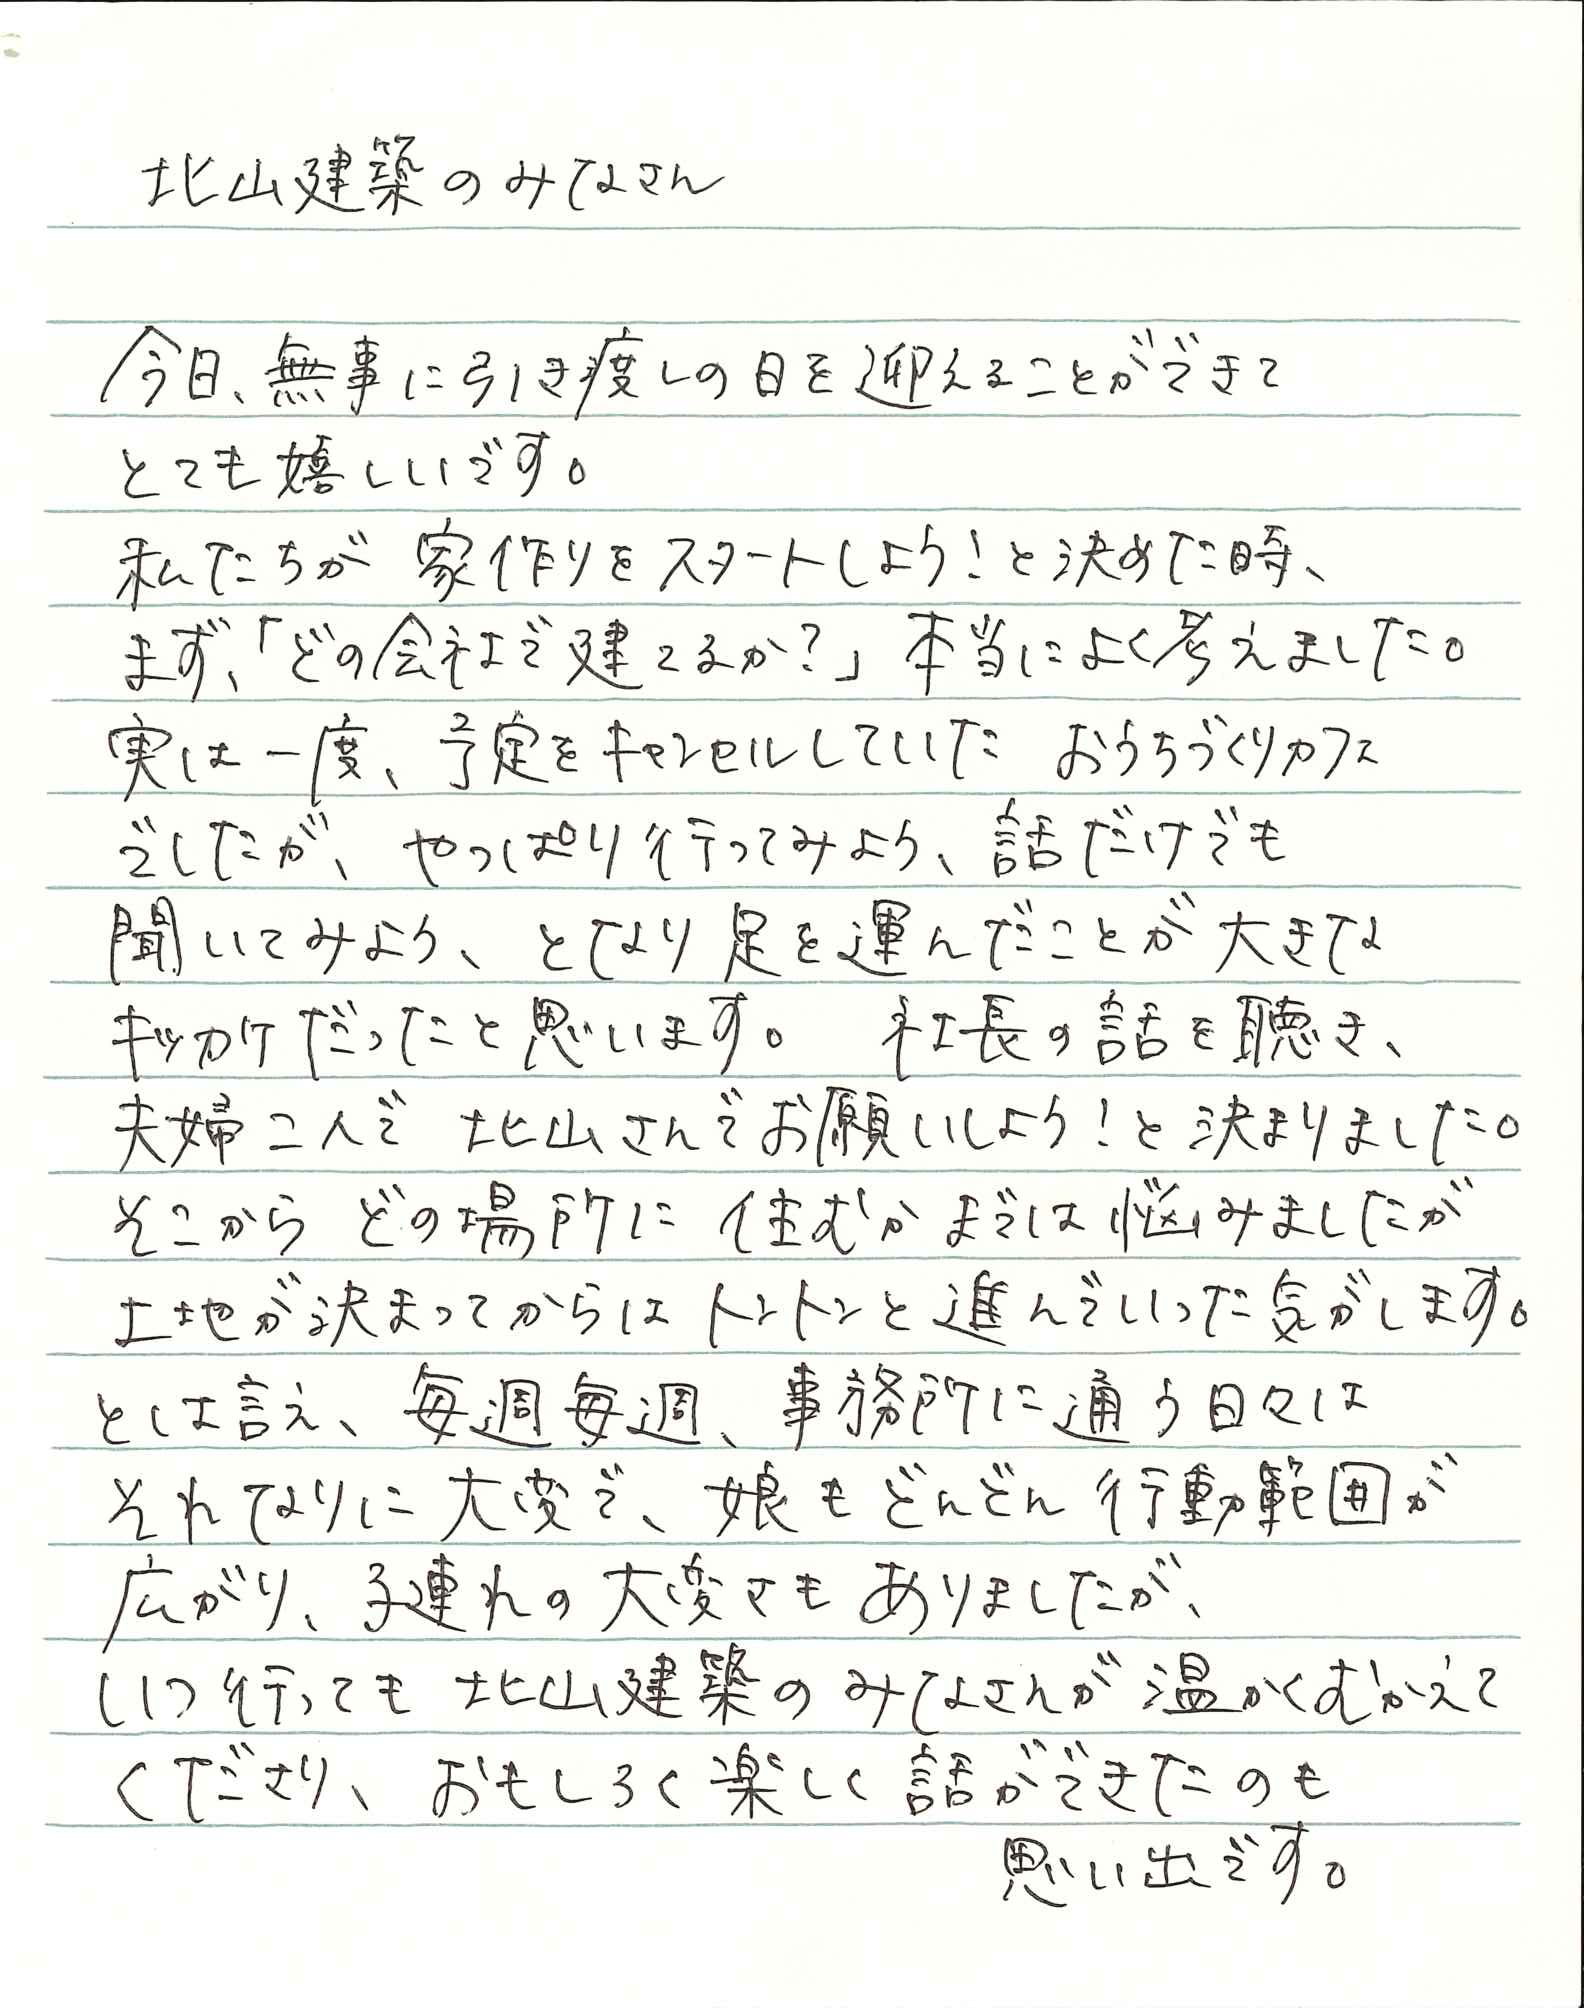 北山建築のみなさん
今日、無事に引き渡しの日を迎えることができて
とても嬉しいです。
私たちが 家作りをスタートしよう！と決めた時、
まず、「どの会社で建てるか？」本当によく考えました。
実は一度、予定をキャンセルしていた おうちづくりカフェ
でしたが、やっぱり行ってみよう、話だけでも
聞いてみよう、となり足を運んだことが大きな
キッカケだったこと思います。 社長の話を聴き、
夫婦二人で 北山さんでお願いしよう！と決まりました。
そこから どの場所に 住むかまでは悩みましたが
土地が決まってからは トントンと進んでいった気がします。
とは言え、毎週毎週、事務所に通う日々は
それなりに大変で、娘もどんどん 行動範囲が
広がり、子連れの大変さも ありましたが、
いつ行っても 北山建築の みなさんが温かくむかえて
くださり、おもしろく楽しく 話ができたのも
思い出です。